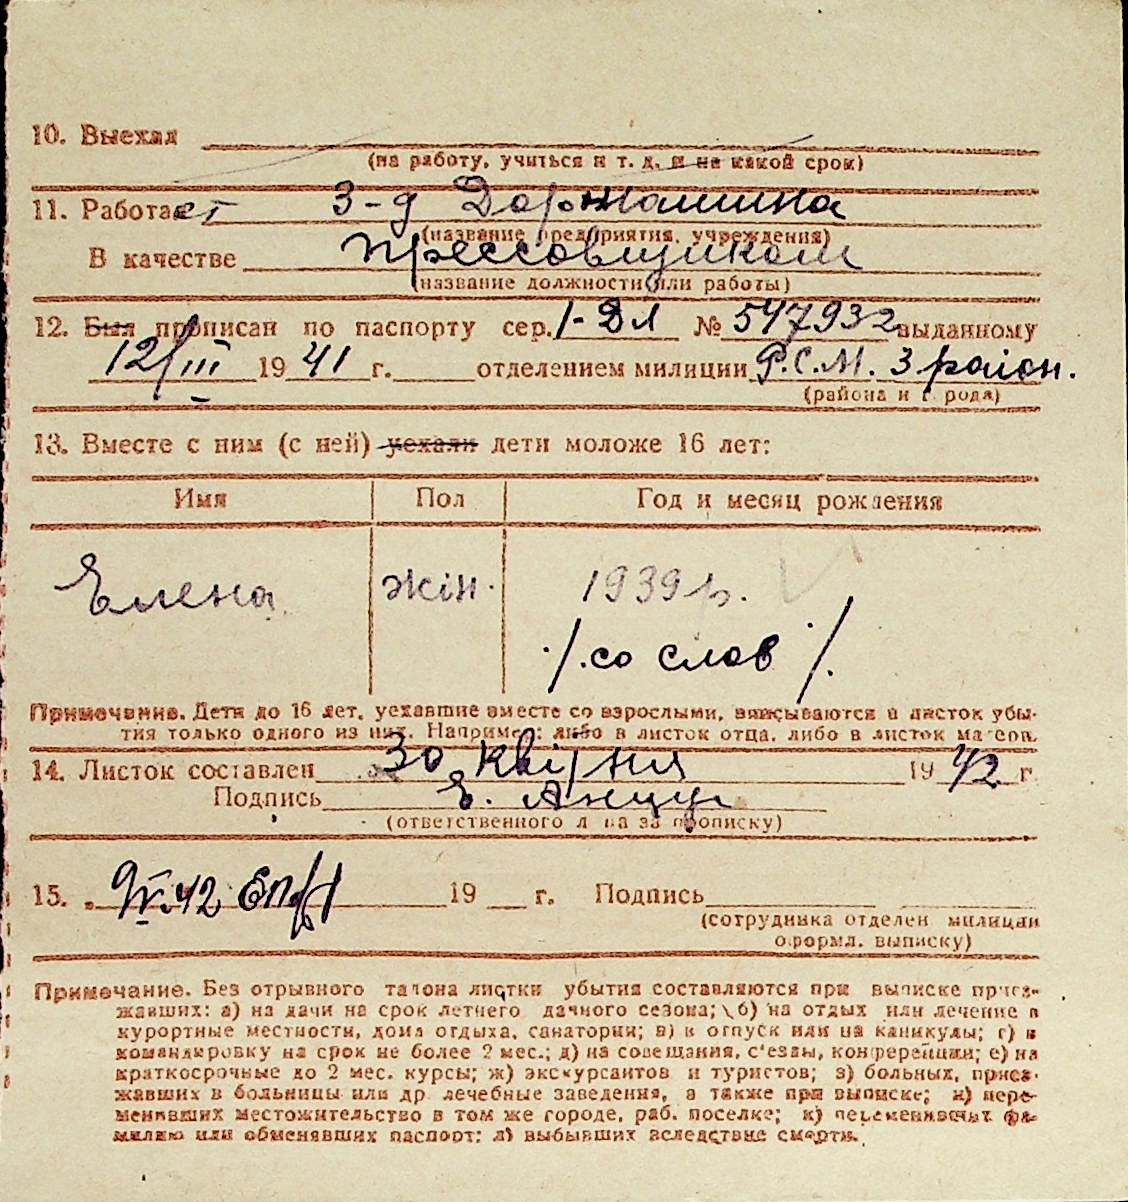 10. Выехал
(на работу, учиться и т. д. и на какой срок)
11. Работает З-д Доржашина
(название предприятия, учреждения)
В качестве прессовщиком
(название должности или работы)
12. Был прописан по паспорту сер. 1-ДЛ № 547932 выданному
12/III 1941 г. отделением милиции Р.С.М. 3 район.
(района и города)
13. Вместе с ним (с ней) уехали дети моложе 16 лет:
Имя Пол Год и месяц рождения
Елена жін. 1939 р.
/. со слов /.
Примечание. Дети до 16 лет, уехавшие вместе со взрослыми, вписываются в листок убы-
тия только одного из них. Например: либо в листок отца, либо в листок матери.
14. Листок составлен 30 квітня 1942 г.
Подпись Е.
(ответственного лица за прописку)
15. 42 19 г. Подпись
(сотрудника отделен. милиции
оформл. выписку)
Примечание. Без отрывного талона листки убытия составляются при выписке приез-
жавших: а) на дачи на срок летнего дачного сезона; б) на отдых или лечение в
курортные местности, дома отдыха, санатории; в) в отпуск или на каникулы; г) в
командировку на срок не более 2 мес.; д) на совещания, с'езды, конференции; е) на
краткосрочные до 2 мес. курсы; ж) экскурсантов и туристов; з) больных, приез-
жавших в больницы или др. лечебные заведения, а также при выписке; и) пере-
менивших местожительство в том же городе, раб. поселке; к) переменивших фа-
милию или обменявших паспорт; л) выбывших вследствие смерти.